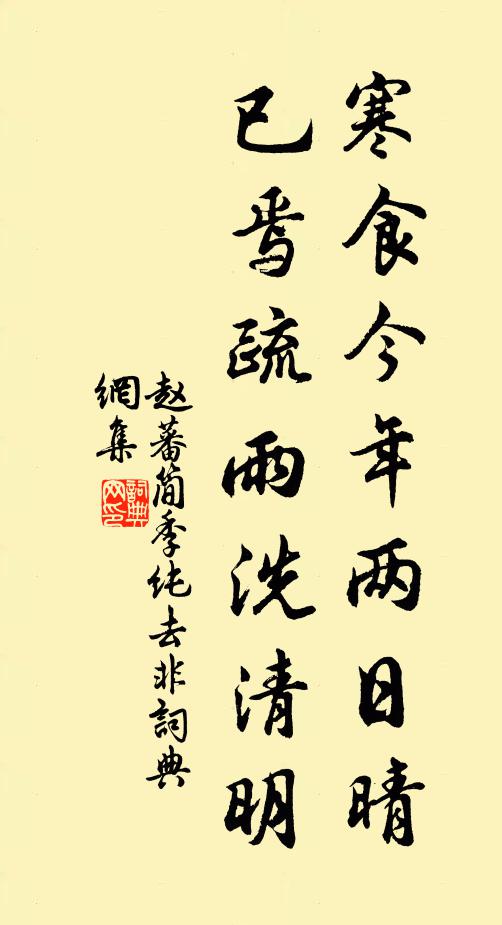 寒食今年两日晴
已焉疏雨洗清明
赵蕃简季纯去非詞典
網集
詞典
网印